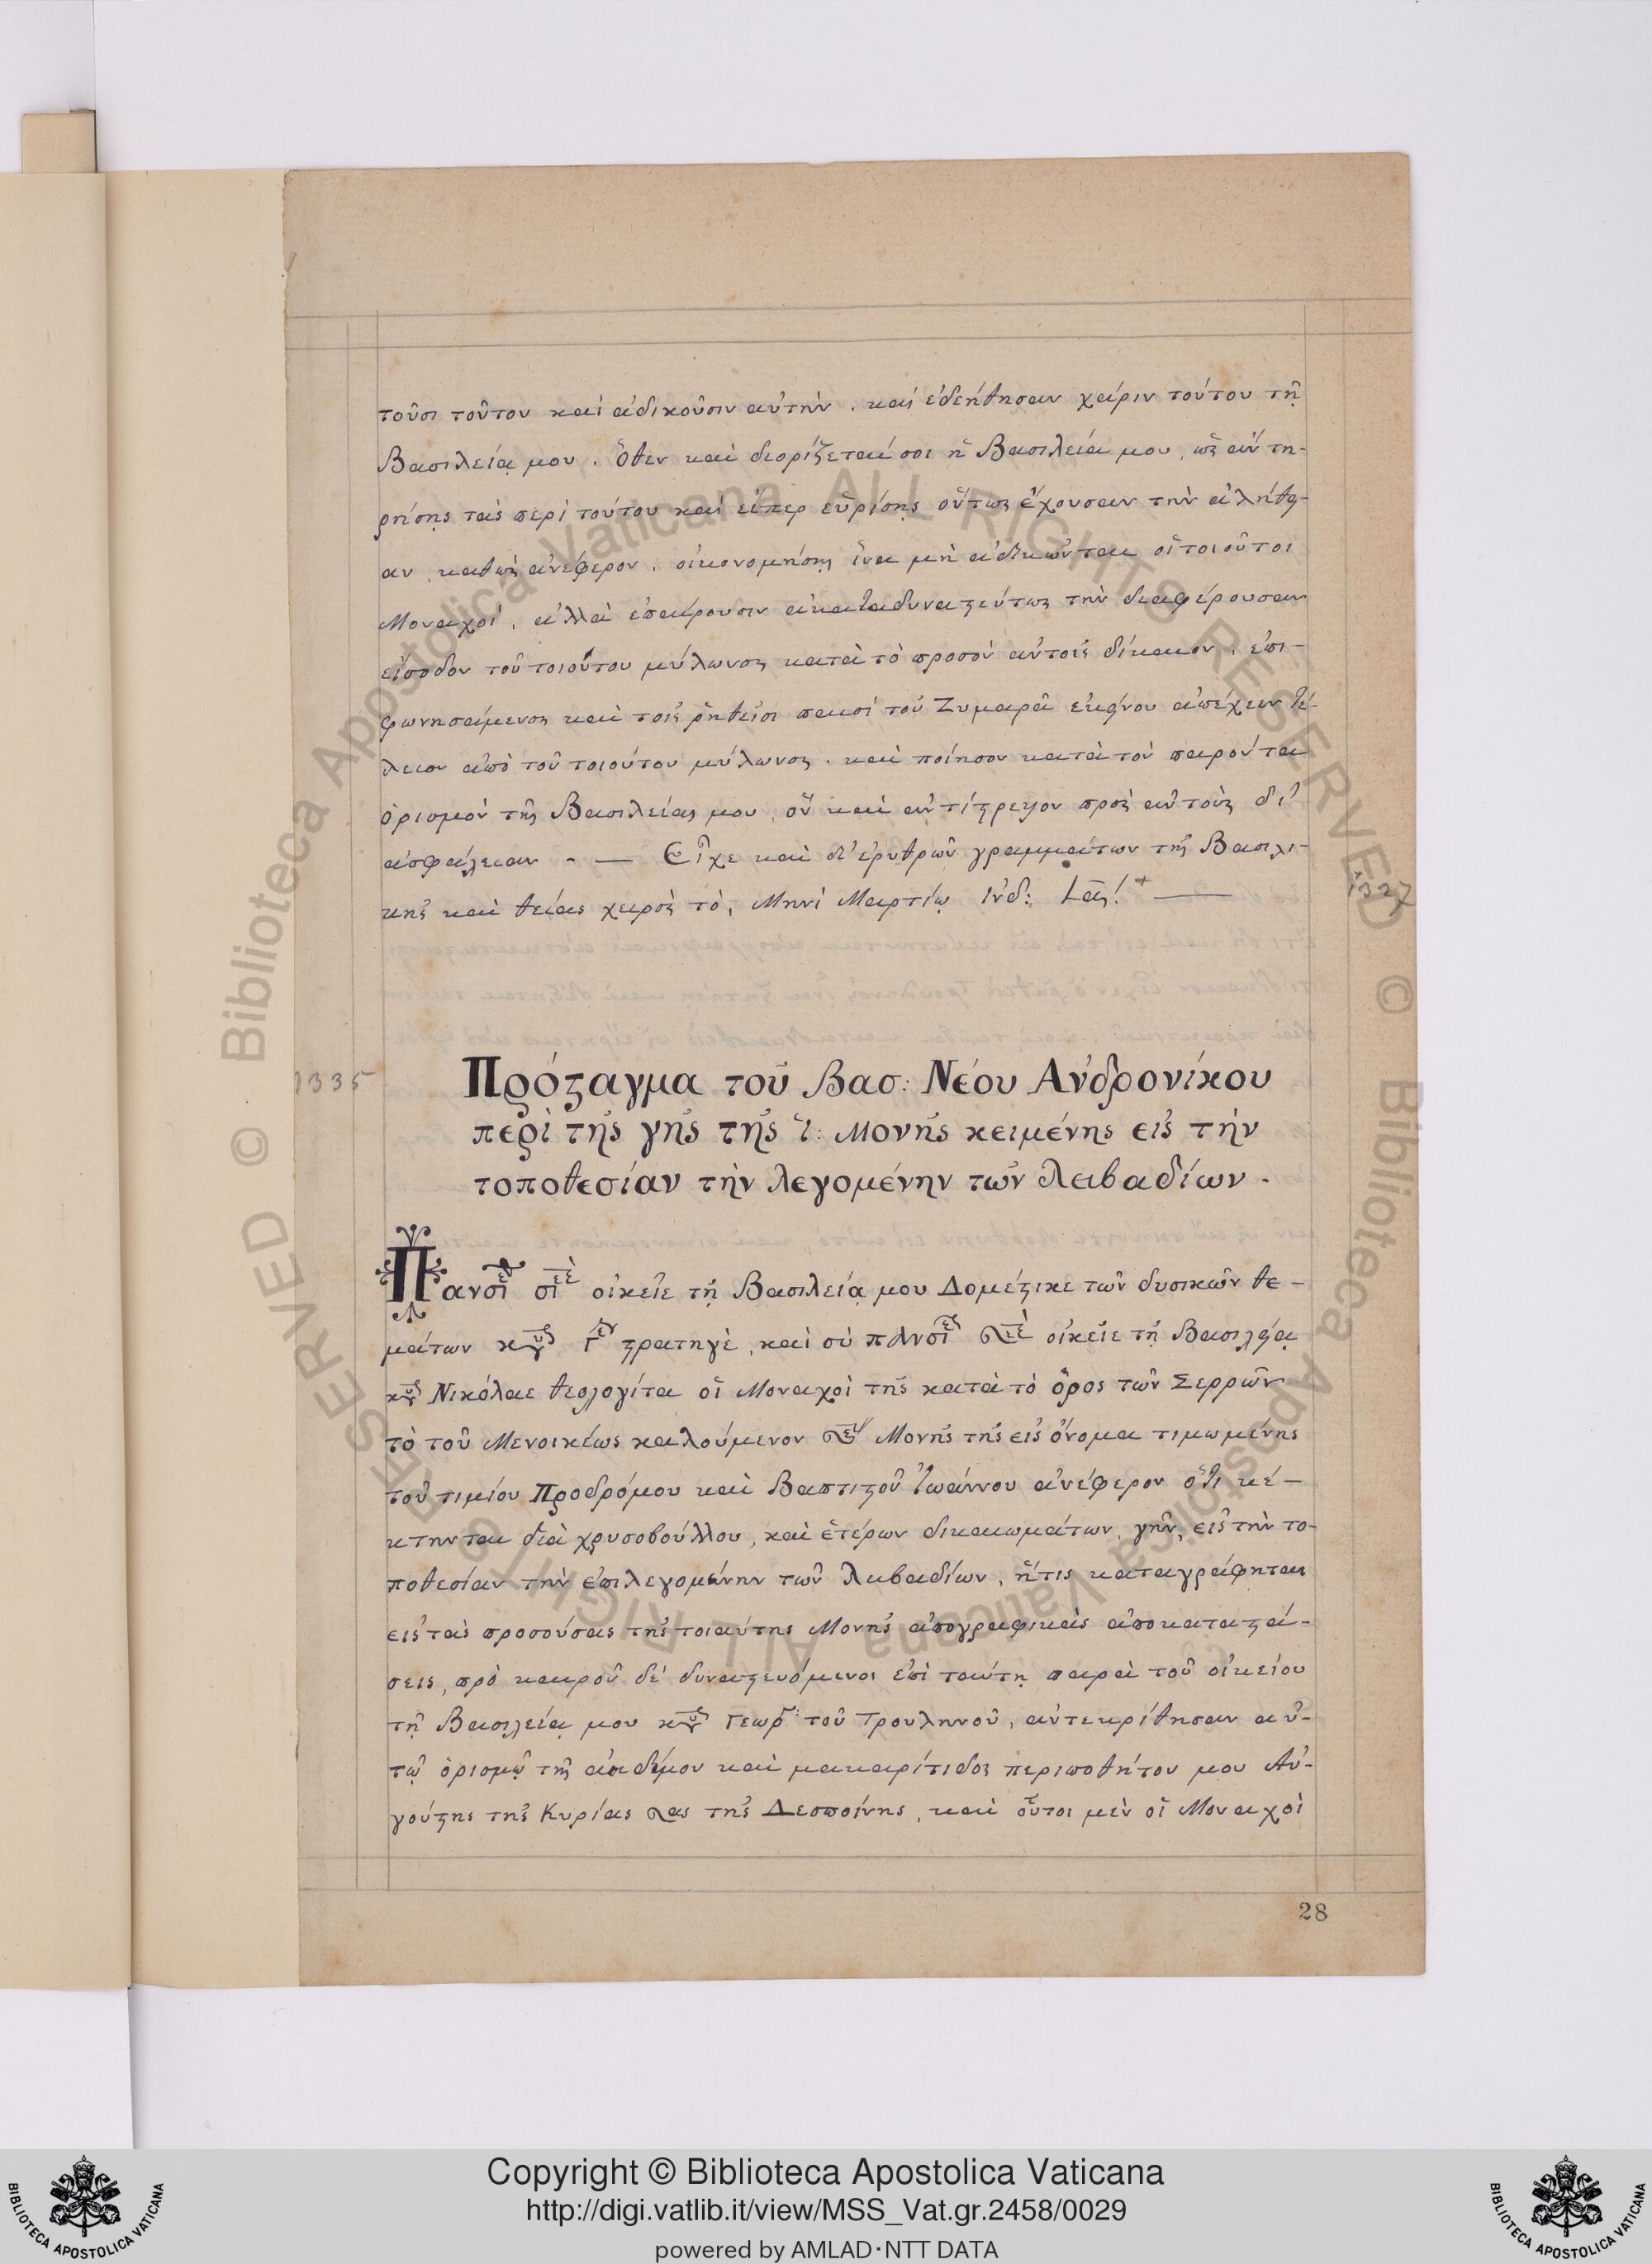 τοῦσι τοῦτον καὶ ἀδικοῦσιν αὐτὴν . καὶ ἐδεήθησαν χάριν τούτου τῇ
Βασιλείᾳ μου . Ὅθεν καὶ διορίζεταί σοι ἡ Βασιλεία μου, ὡς ἂν τη-
ρήσῃς τὰς περὶ τούτου καὶ εἴπερ εὑρίσῃς οὕτως ἔχουσαν τὴν ἀλήθει-
αν, καθὼς ἀνέφερον, οἰκονομήσῃς ἵνα μὴ ἀδικῶνται οἱ τοιοῦτοι
Μοναχοί, ἀλλὰ ἐπαίρουσιν ἀκαταδυναστεύτως τὴν διαφέρουσαν
εἴσοδον τοῦ τοιούτου μύλωνος κατὰ τὸ προσὸν αὐτοῖς δίκαιον, ἐπι-
φωνησάμενος καὶ τοῖς ῥηθεῖσι παισί τοῦ Ζυμαρᾶ ἐκείνου ἀπέχειν τέ-
λειον ἀπὸ τοῦ τοιούτου μύλωνος . καὶ ποίησον κατὰ τὸν παρόντα
ὁρισμόν τῆς Βασιλείας μου, ὃν καὶ ἀντίστρεψον πρὸς αὐτοὺς δι'
ἀσφάλειαν . — Εἶχε καὶ δι' ἐρυθρῶν γραμμάτων τῆς Βασιλι-
κῆς καὶ θείας χειρὸς τὸ, Μηνὶ Μαρτίῳ ἰνδ:
1327
1335
Πρόσταγμα τοῦ Βασ: Νέου Ἀνδρονίκου
περὶ τῆς γῆς τῆς ἱ: Μονῆς κειμένης εἰς τὴν
τοποθεσίαν τὴν λεγομένην τῶν Λειβαδίων .
Πανσε σεὲ οἰκεῖε τῇ Βασιλείᾳ μου Δομέστικε τῶν δυσικῶν θε-
μάτων κῦρ στρατηγὲ, καὶ σὺ πανσε οἰκεῖε τῇ Βασιλείᾳ
κῦρ Νικόλαε θεολογίτα οἱ Μοναχοὶ τῆς κατὰ τὸ ὄρος τῶν Σερρῶν
τὸ τοῦ Μενοικέως καλούμενον Μονῆς τῆς εἰς ὄνομα τιμωμένης
τοῦ τιμίου Προδρόμου καὶ Βαπτιστοῦ Ἰωάννου ἀνέφερον ὅτι κέ-
κτηνται διὰ χρυσοβούλλου, καὶ ἑτέρων δικαιωμάτων, γῆν, εἰς τὴν το-
ποθεσίαν τὴν ἐπιλεγομένην τῶν Λιβαδίων, ἥτις καταγράφηται
εἰς τὰς προσούσας τῆς τοιαύτης Μονῆς ἀπογραφικὰς ἀποκαταστά-
σεις, πρὸ καιροῦ δέ δυναστευόμενοι ἐπὶ ταύτῃ παρὰ τοῦ οἰκείου
τῇ Βασιλείᾳ μου κῦρ Γεωρ: τοῦ Τρουληνοῦ, ἀντεκρίθησαν αὐ-
τῷ ὁρισμῷ τῆς ἀοιδίμου καὶ μακαρίτιδος περιποθήτου μου Αὐ-
γούστης τῆς Κυρίας τῆς Δεσποίνης, καὶ οὗτοι μὲν οἱ Μοναχοὶ
28
© Biblioteca Apostolica Vaticana ALL RIGHTS RESERVED © Biblioteca Apostolica Vaticana ALL RIGHTS RESERVED
Copyright © Biblioteca Apostolica Vaticana
http://digi.vatlib.it/view/MSS_Vat.gr.2458/0029
powered by AMLAD·NTT DATA
BIBLIOTECA APOSTOLICA VATICANA
BIBLIOTECA APOSTOLICA VATICANA